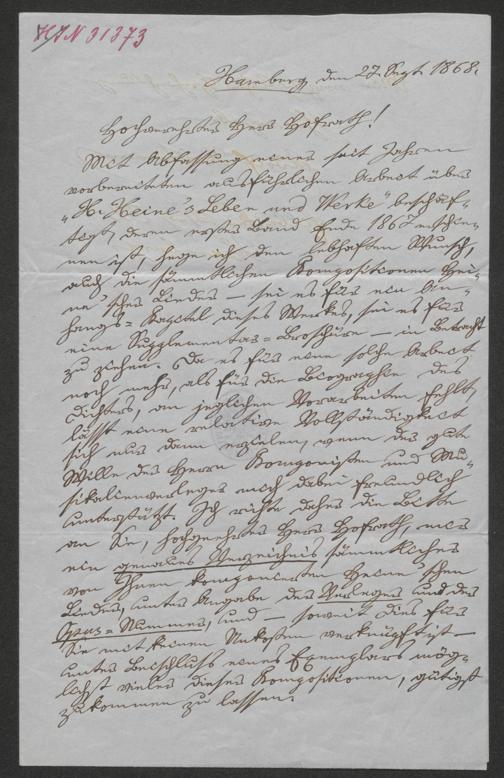 H.I.N 31373
Hamburg, den 27. Sept. 1868.
Hochverehrter Herr Hofrath!
Mit Abfassung einer seit Jahren
vorbereiteten ausführlichen Arbeit über
„H. Heine's Leben und Werke" beschäf-
tigt, deren erster Band Ende 1867 erschie-
nen ist, hege ich den lebhaften Wunsch,
auch die sämmtlichen Kompositionen Hei-
ne'scher Lieder — sei es für ein An-
hangs-Kapitel dieses Werkes, sei es für
eine Supplementar-Broschüre — in Betracht
zu ziehen. Da es für eine solche Arbeit
noch mehr, als für die Biographie des
Dichters, an jeglichen Vorarbeiten fehlt,
lässt eine relative Vollständigkeit
sich nur dann erzielen, wenn der gute
Wille der Herrn Komponisten und Mu-
sikalienverleger mich dabei freundlich
unterstützt. Ich richte daher die Bitte
an Sie, hochgeehrter Herr Hofrath, mir
ein genaues Verzeichnis sämmtlicher
von Ihnen komponirten Heine'schen
Lieder, unter Angabe des Verlegers und der
Opus-Nummer, und — soweit dies für
Sie mit keinen Unkosten verknüpft ist —
unter Beischluss eines Exemplars mög-
lichst vieler dieser Kompositionen, gütigst
zukommen zu lassen.